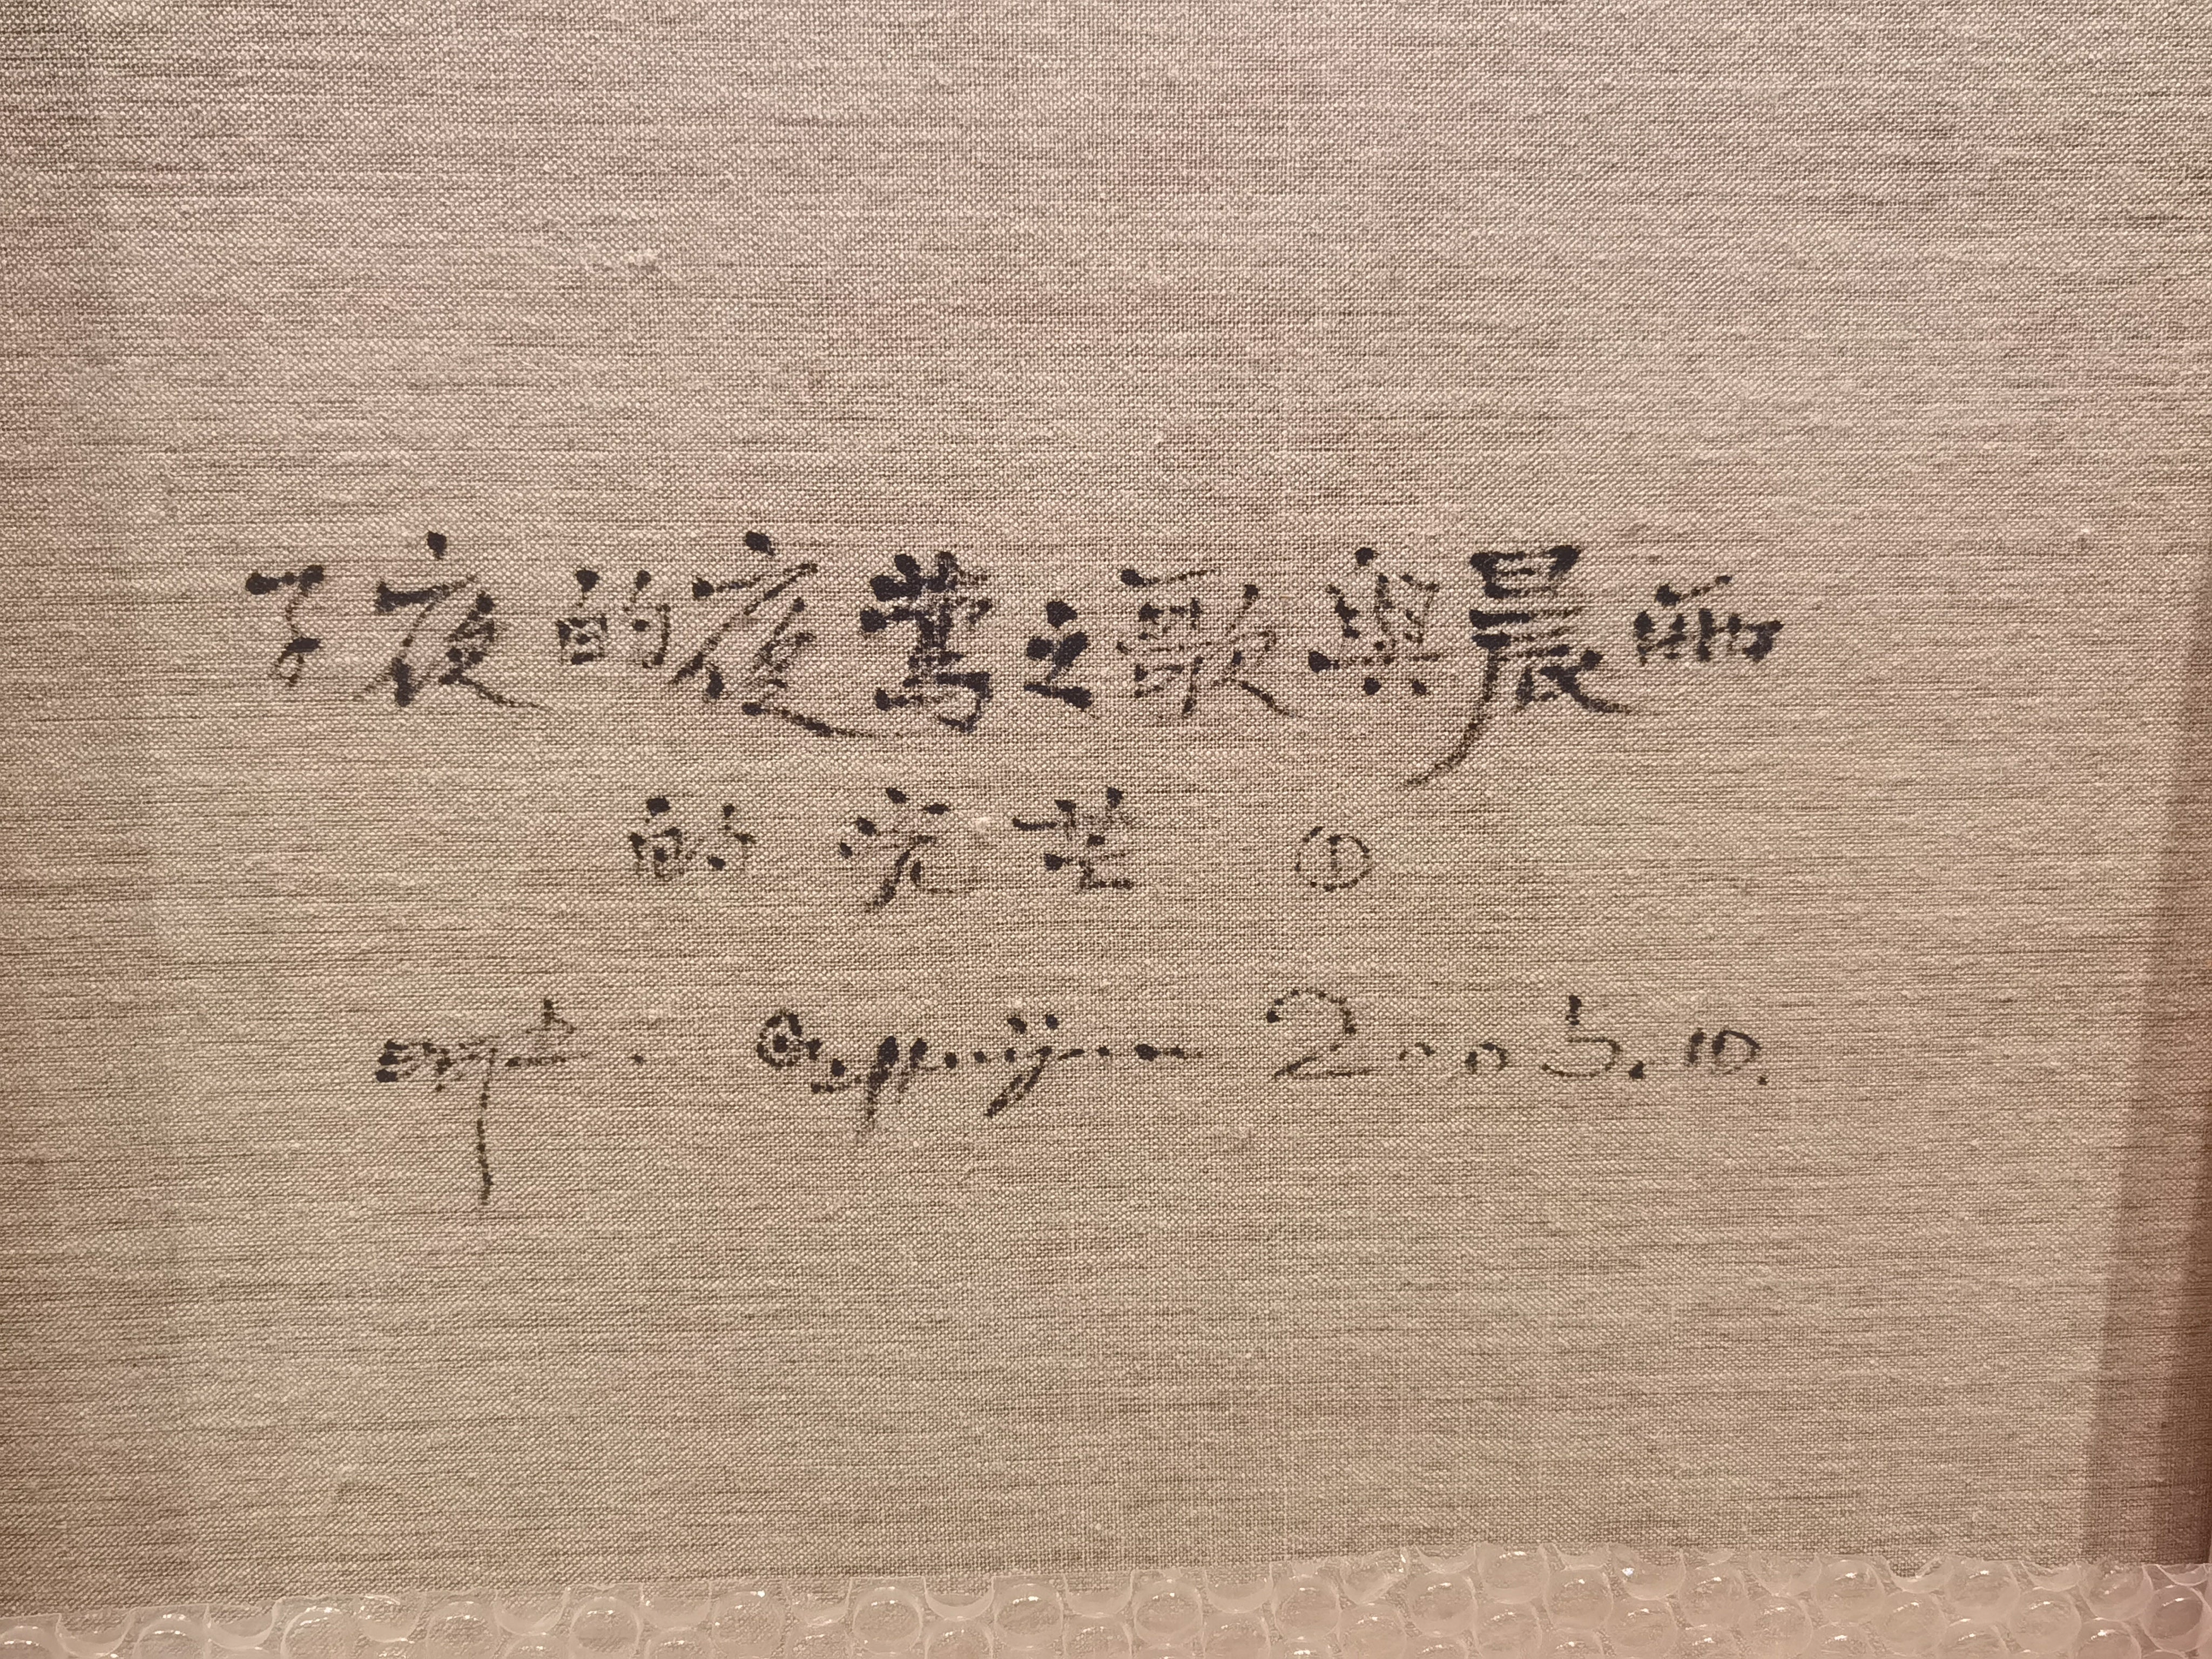 子夜的夜莺之歌與晨
的光芒 ①
2005.10.